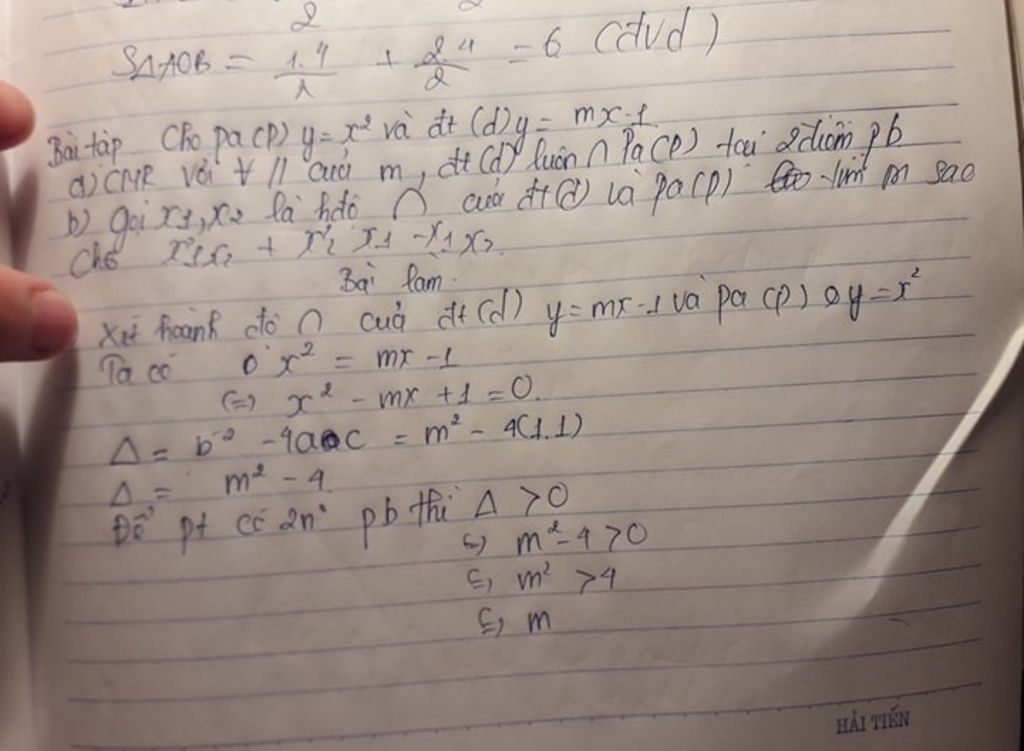 2
S△AOB = 1.4/2 + 2.4/2 = 6 (đvd)
Bài tập Cho pa(P) y = x² và đt (d) y = mx-1
a) CMR với ∀ // của m, đt (d) luôn ∩ Pa(P) tại 2 điểm pb
b) gọi x1, x2 là hđộ ∩ của đt (d) và pa(P) tìm m sao
cho x²1x2 + x²2 x1 - x1x2
Bài làm
Xét hoành độ ∩ của đt (d) y = mx-1 và pa (P) y = x²
Ta có x² = mx - 1
(=) x² - mx + 1 = 0
Δ = b² - 4ac = m² - 4(1.1)
Δ = m² - 4
Để pt có 2n° pb thì Δ > 0
(=) m² - 4 > 0
(=) m² > 4
(=) m
HẢI TIẾN